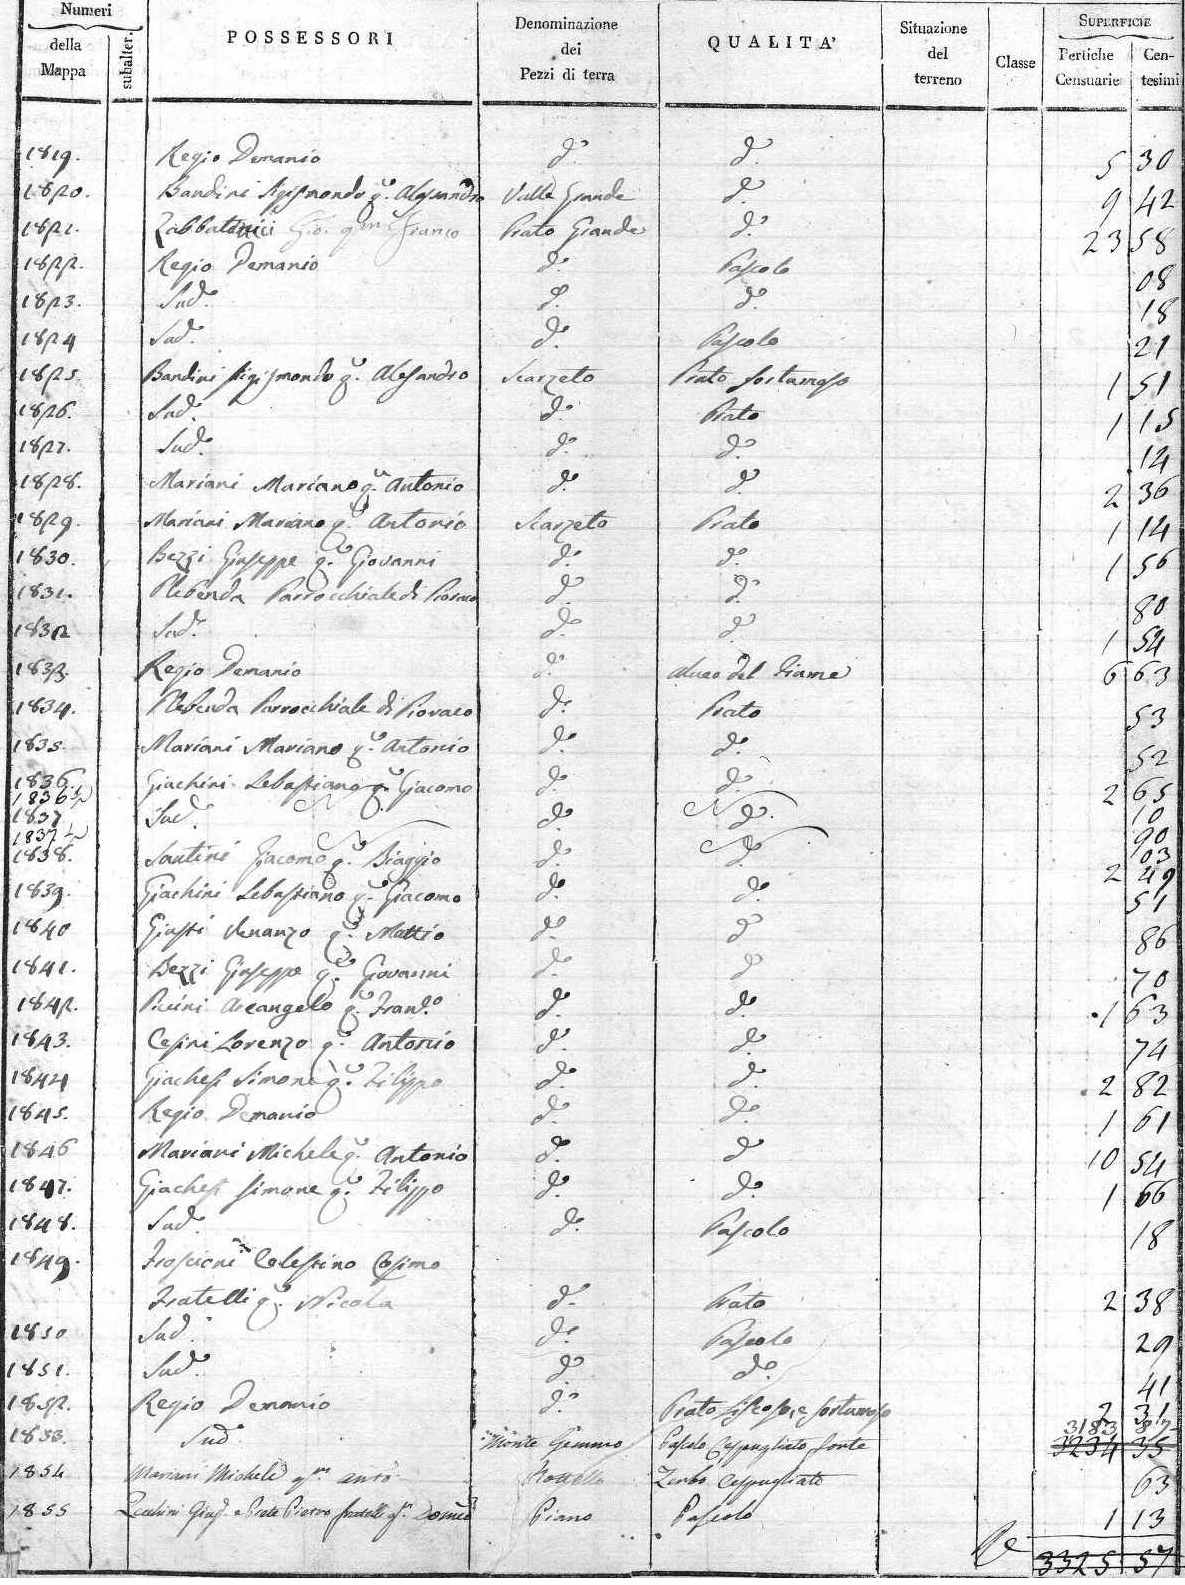 Numeri
della Mappa
subalter.
POSSESSORI
Denominazione dei Pezzi di terra
QUALITA'
Situazione del terreno
Classe
SUPERFICIE
Pertiche Censuarie
Centesimi
1819. Regio Demanio d.° d.° 5 30
1820. Bandini Sigismondo q. Alessandro Valle Grande d.° 9 42
1821. Zabbatinici Gio. qm Franco Prato Grande d.° 23 58
1822. Regio Demanio d.° Pascolo 08
1823. Sud.° d.° d.° 18
1824 Sud.° d.° Pascolo 21
1825 Bandini Sigismondo q. Alesandro Scarzeto Prato sortumoso 1 51
1826. Sud.° d.° Prato 1 15
1827. Sud.° d.° d.° 14
1828. Mariani Mariano q. Antonio d.° d.° 2 36
1829. Mariani Mariano q. Antonio Scarzeto Prato 1 14
1830. Bezzi Giuseppe q. Giovanni d.° d.° 1 56
1831. Plebenda Parrocchiale di Pioraco d.° d.° 80
1832 Sud.° d.° d.° 1 54
1833. Regio Demanio d.° Alveo del Fiume 6 63
1834. Plebenda Parrocchiale di Pioraco d.° Prato 53
1835. Mariani Mariano q. Antonio d.° d.° 52
1836. Giachini Sebastiano q. Giacomo d.° d.° 2 65
1836 1/2 10
1837 Sud.° d.° d.° 90
1837 1/2 03
1838. Santini Giacomo q. Biaggio d.° d.° 2 49
1839. Giachini Sebastiano q. Giacomo d.° d.° 51
1840 Giusti Venanzo q. Mattio d.° d.° 86
1841. Bezzi Giuseppe q. Giovanni d.° d.° 70
1842. Piccini Arcangelo q. Fran.° d.° d.° 1 63
1843. Cesini Lorenzo q. Antonio d.° d.° 74
1844 Giachesi Simone q. Filippo d.° d.° 2 82
1845. Regio Demanio d.° d.° 1 61
1846 Mariani Michele q. Antonio d.° d.° 10 54
1847. Giachesi Simone q. Filippo d.° d.° 1 66
1848. Sud.° d.° Pascolo 18
1849. Froscioni Celestino Cosimo
Fratelli q. Nicola d.° Prato 2 38
1850 Sud.° d.° Pascolo 29
1851. Sud.° d.° d.° 41
1852. Regio Demanio d.° Prato e sortumoso 2 31
3183
1853. Sud.° Monte Gemmo Pascolo Cespugliato forte 3234 35
1854 Mariani Michele qm Anto Zerbo Cespugliato 63
1855 Giuse. e Prete Pietro fratelli qm Domco Piano Pascolo 1 13
3325 57